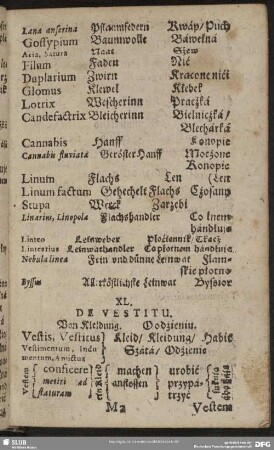 Lana anserina Pflaumfedern Kwáp/Puch
Gossypium Baumwolle Báwełná
Acia, Sutura Naat Szew
Filum Faden Nić
Duplarium Zwirn Kráconenići
Glomus Klewel Kłebek
Lotrix Wescherinn Praczká
Candefactrix Bleicherinn Bielniczká/
Blechárká
Cannabis Hanff Konopie
Cannabis fluviata Geröster Hanff Moczone
Konopie
Linum Flachs Len (Len
Linum factum Gehechelt Flachs Czosány
Stupa Werck Zárzebi
Linarius, Linopola Flachshandler Co lnem
hándluie
Linteo Leinweber Płociennik/Tkacz
Lintearius Leinwathandler Co płotnem hándluie
Nebula linea Fein und dünne Leinwat Flám-
skie płotno
Byssus Allerköstlichste Leinwat Bysior
XL.
DE VESTITU.
Von Kleidung. O odzieniu.
Vestis, Vestitus Kleid/Kleidung/ Habit
Vestimentum, Indu Szátá/Odzienie
mentum, Amictus
Vestem conficere ein Kleid machen urobić
metiri ad anstossen przypá-
staturam trzyć
M2 Vestem